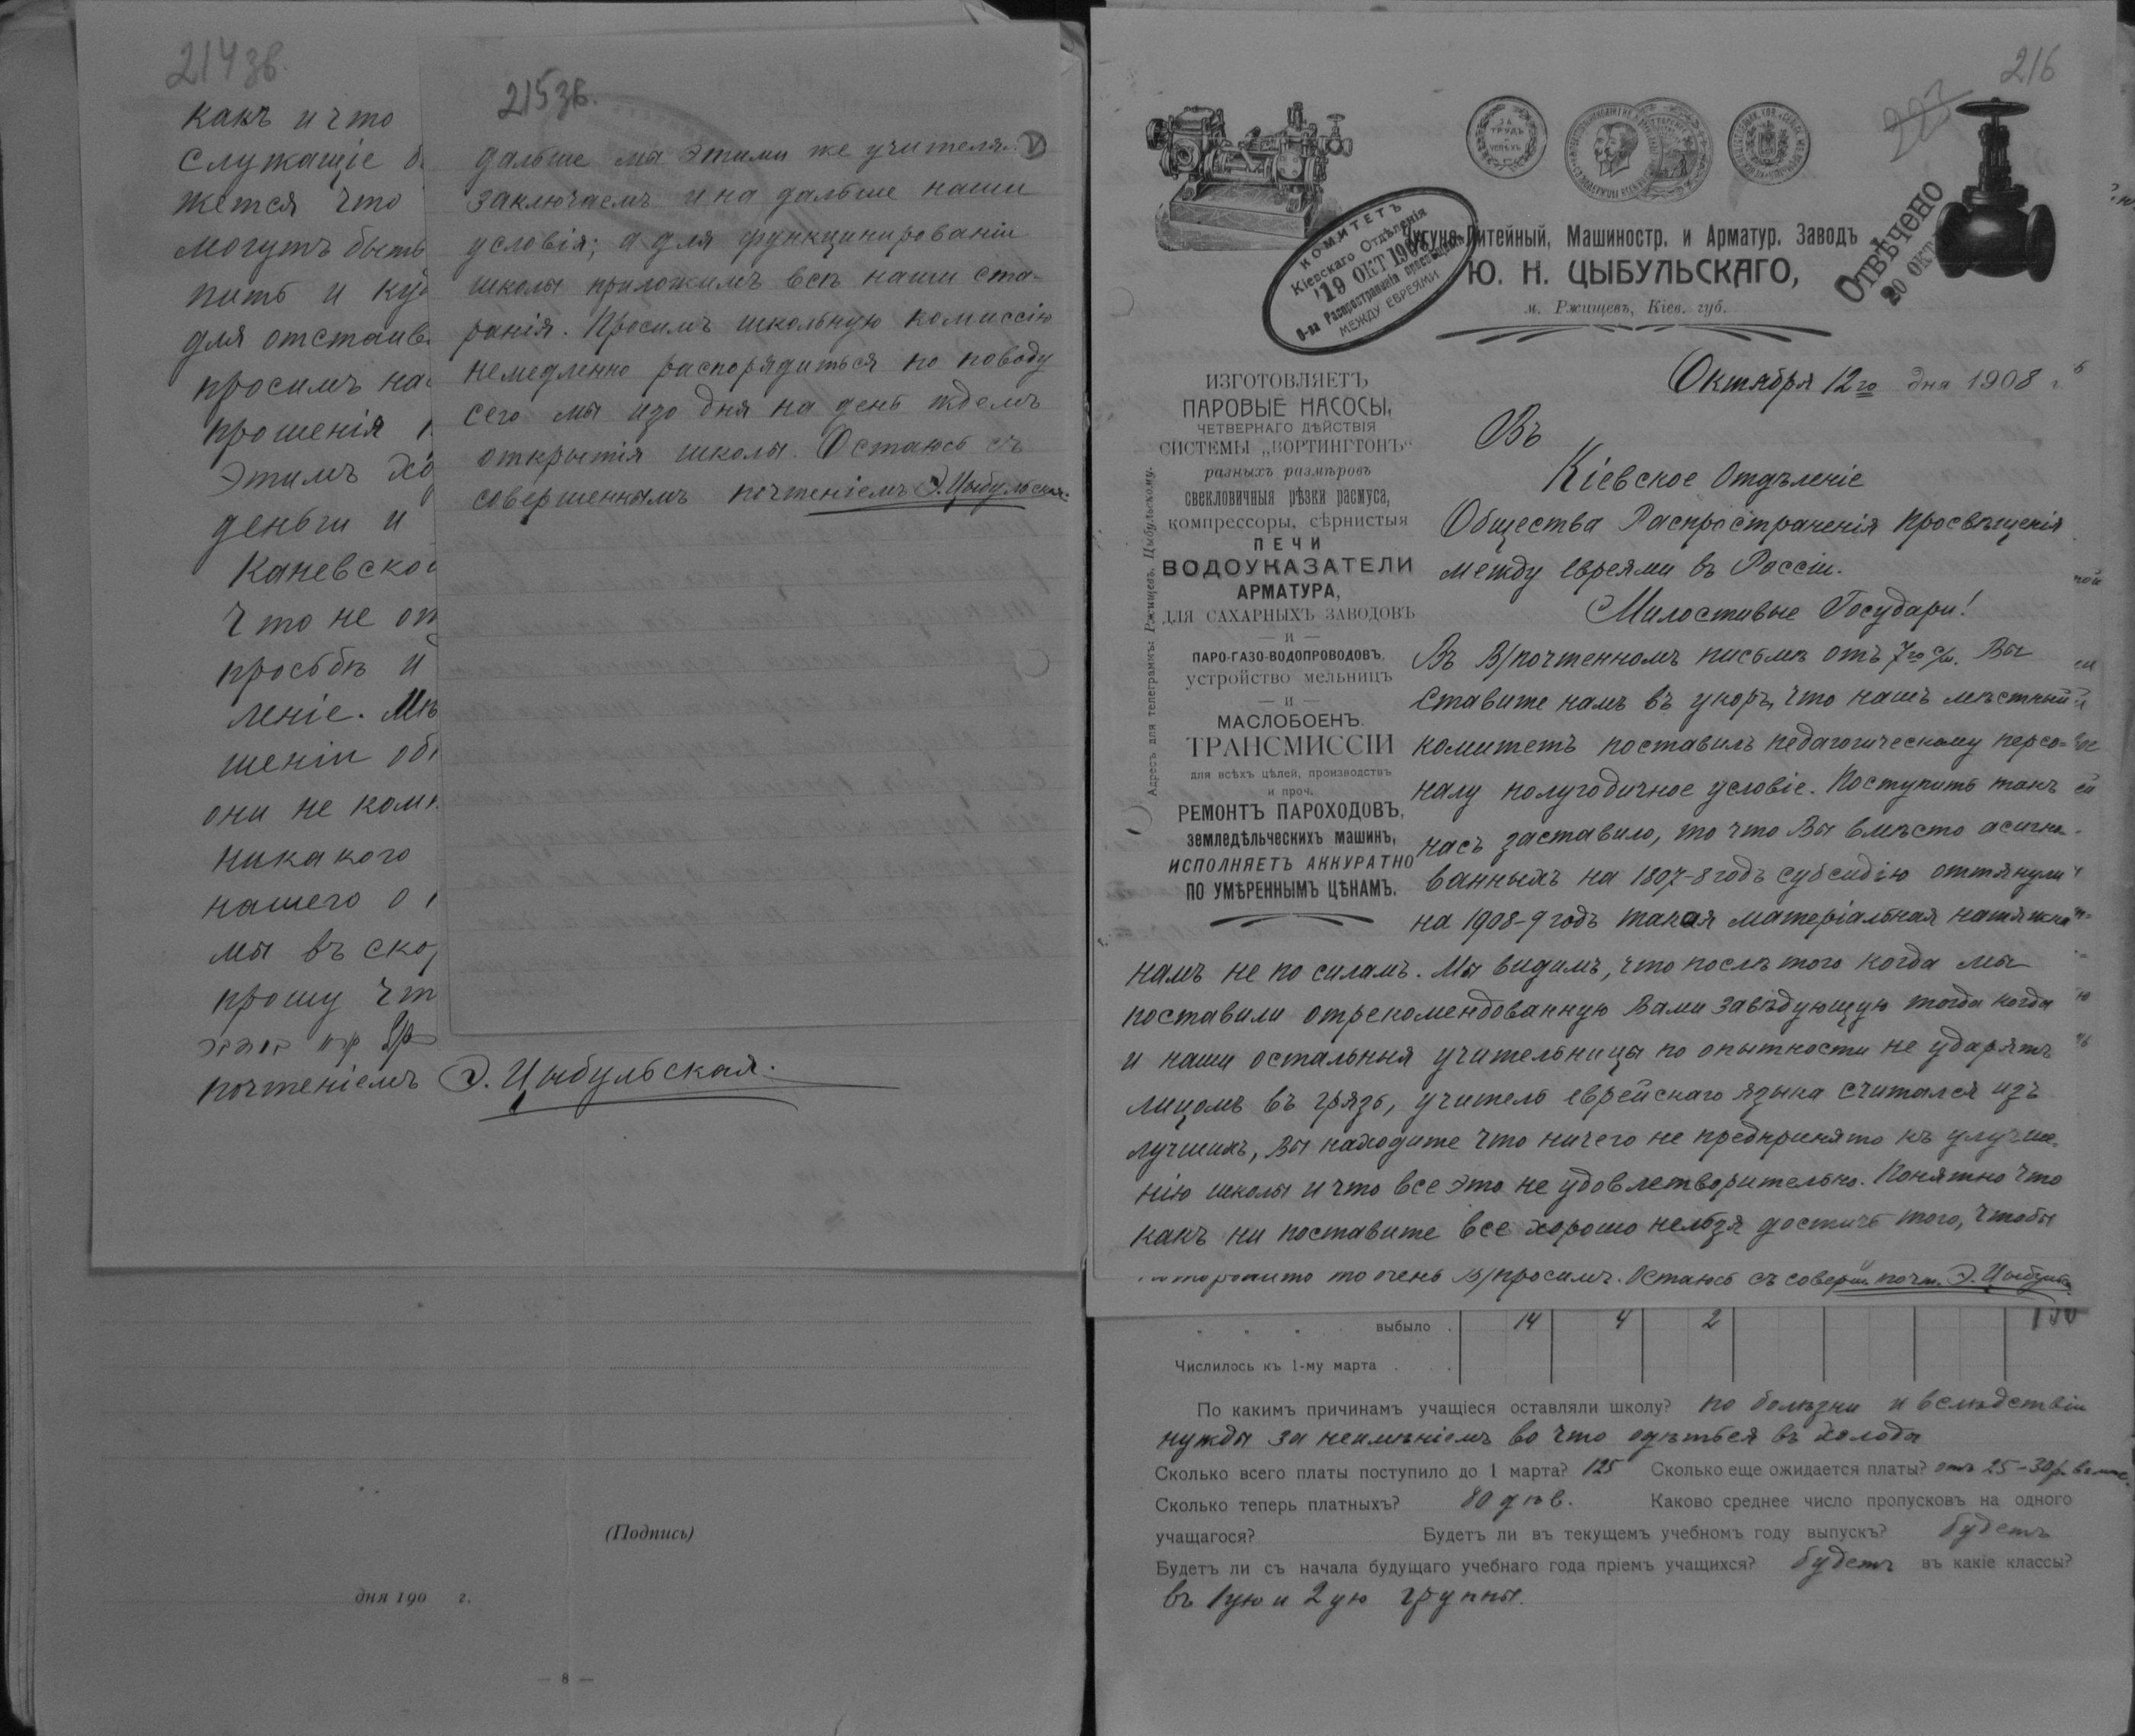 214 зв.
какъ и что
служащіе
жется что
могутъ быть
пить и
для отстаив
просимъ на
прошенія
этимъ
деньги и
Каневско
Что не от
просьбѣ и
леніе. Мы
шеніи об
они не ком
никакого
нашего о
мы въ ско
прошу
почтеніемъ Э. Цыбульская.
215 зв.
дальше мы этими же учителя
заключаемъ и на дальше наши
условія; а для функцинированіи
школы приложимъ всѣ наши ста-
ранія. Просимъ школьную комиссію
немедленно распорядиться по поводу
сего мы изо дня на день ждемъ
открытія школы. Остаюсь съ
совершеннымъ почтеніемъ Э. Цыбульская.
(Подпись)
дня 190 г.
— 8 —
216
223
ЗА ТРУДЪ УСПѢХЪ
КОМИТЕТЪ
Кіевскаго Отдѣленія
19 ОКТ 1908
О-ва Распространенія просвѣщенія
МЕЖДУ ЕВРЕЯМИ
ОТВѢЧЕНО
20 ОКТ
Чугуно-Литейный, Машиностр. и Арматур. Заводъ
Ю. Н. ЦЫБУЛЬСКАГО,
м. Ржищевъ, Кіев. губ.
Адресъ для телеграммъ: Ржищевъ, Цыбульскому.
ИЗГОТОВЛЯЕТЪ
ПАРОВЫЕ НАСОСЫ,
ЧЕТВЕРНАГО ДѢЙСТВІЯ
СИСТЕМЫ „ВОРТИНГТОНЪ“
разныхъ размѣровъ
свекловичныя рѣзки расмуса,
компрессоры, сѣрнистыя
ПЕЧИ
ВОДОУКАЗАТЕЛИ
АРМАТУРА,
ДЛЯ САХАРНЫХЪ ЗАВОДОВЪ
— и —
ПАРО-ГАЗО-ВОДОПРОВОДОВЪ,
устройство мельницъ
— и —
МАСЛОБОЕНЪ.
ТРАНСМИССІИ
для всѣхъ цѣлей, производствъ
и проч.
РЕМОНТЪ ПАРОХОДОВЪ,
земледѣльческихъ машинъ,
ИСПОЛНЯЕТЪ АККУРАТНО
ПО УМѢРЕННЫМЪ ЦѢНАМЪ.
Октября 12го дня 1908 г.
Въ
Кіевское Отдѣленіе
Общества Распространенія просвѣщенія
между евреями въ Россіи.
Милостивые Государи!
Въ В/почтенномъ письмѣ отъ 7го с/м. Вы
ставите намъ въ укоръ, что нашъ мѣстный
комитетъ поставилъ педагогическому персо-
налу полугодичное условіе. Поступить такъ
насъ заставило, то что Вы вмѣсто асигно-
ванныхъ на 1807-8 годъ субсидію оттянули
на 1908-9 годъ такая матеріальная натяжка
намъ не по силамъ. Мы видимъ, что послѣ того когда мы
поставили отрекомендованную Вами завѣдующую тогда когда
и наши остальныя учительницы по опытности не ударятъ
лицомъ въ грязь, учитель еврейскаго языка считался изъ
лучшихъ, Вы находите что ничего не предпринято къ улучше-
нію школы и что все это не удовлетворительно. Понятно что
какъ ни поставите все хорошо нельзя достичь того, чтобы
то очень В/просимъ. Остаюсь съ соверш. почт. Э. Цыбульс
„ „ „ выбыло . 14 4 2
Числилось къ 1-му марта . . .
По какимъ причинамъ учащіеся оставляли школу? по болѣзни и вслѣдствіи
нужды за неимѣніемъ во что одѣться въ холода
Сколько всего платы поступило до 1 марта? 125 Сколько еще ожидается платы? отъ 25-30 р.
Сколько теперь платныхъ? 80 дѣв. Каково среднее число пропусковъ на одного
учащагося? Будетъ ли въ текущемъ учебномъ году выпускъ? будетъ
Будетъ ли съ начала будущаго учебнаго года пріемъ учащихся? будетъ въ какіе классы?
въ 1ую и 2ую группы.